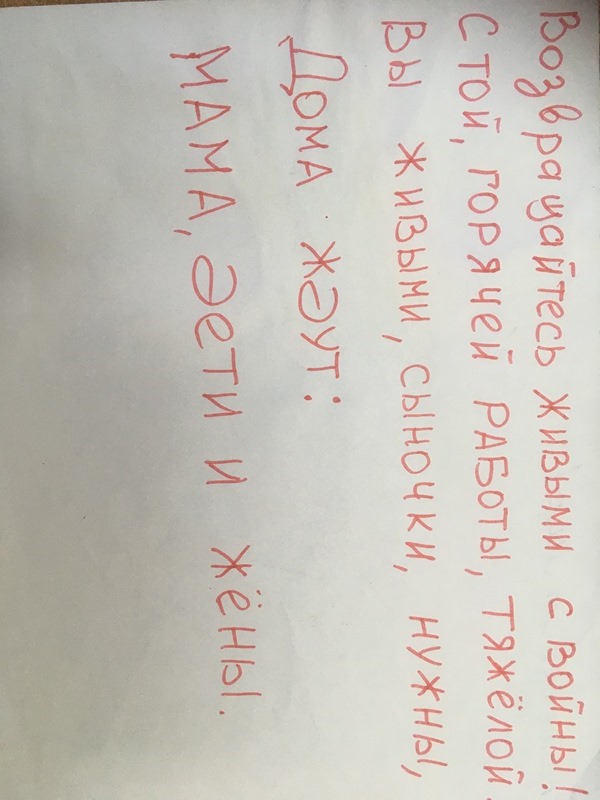 Возвращайтесь живыми с войны!
С той, горячей работы, тяжёлой.
Вы живыми, сыночки, нужны,
Дома ждут:
мама, дети и жёны.